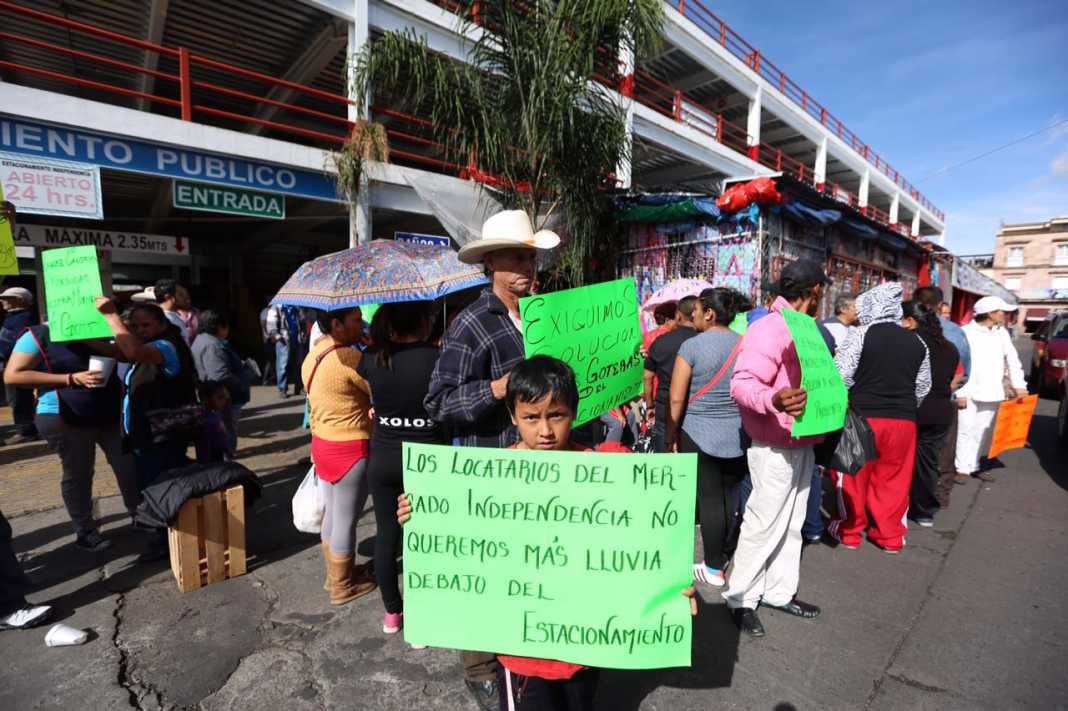 IENTO PUBLICO
ESTACIONAMIENTO INDEPENDENCIA
ABIERTO
24 hrs.
ENTRADA
MAXIMA 2.35MTS
EXIGUIMOS
SOLUCION
DEL
GOTERAS DEL
ESTACIONAMIENTO
XOLOS
LOS LOCATARIOS DEL MER-
CADO INDEPENDENCIA NO
QUEREMOS MÁS LLUVIA
DEBAJO DEL
ESTACIONAMIENTO